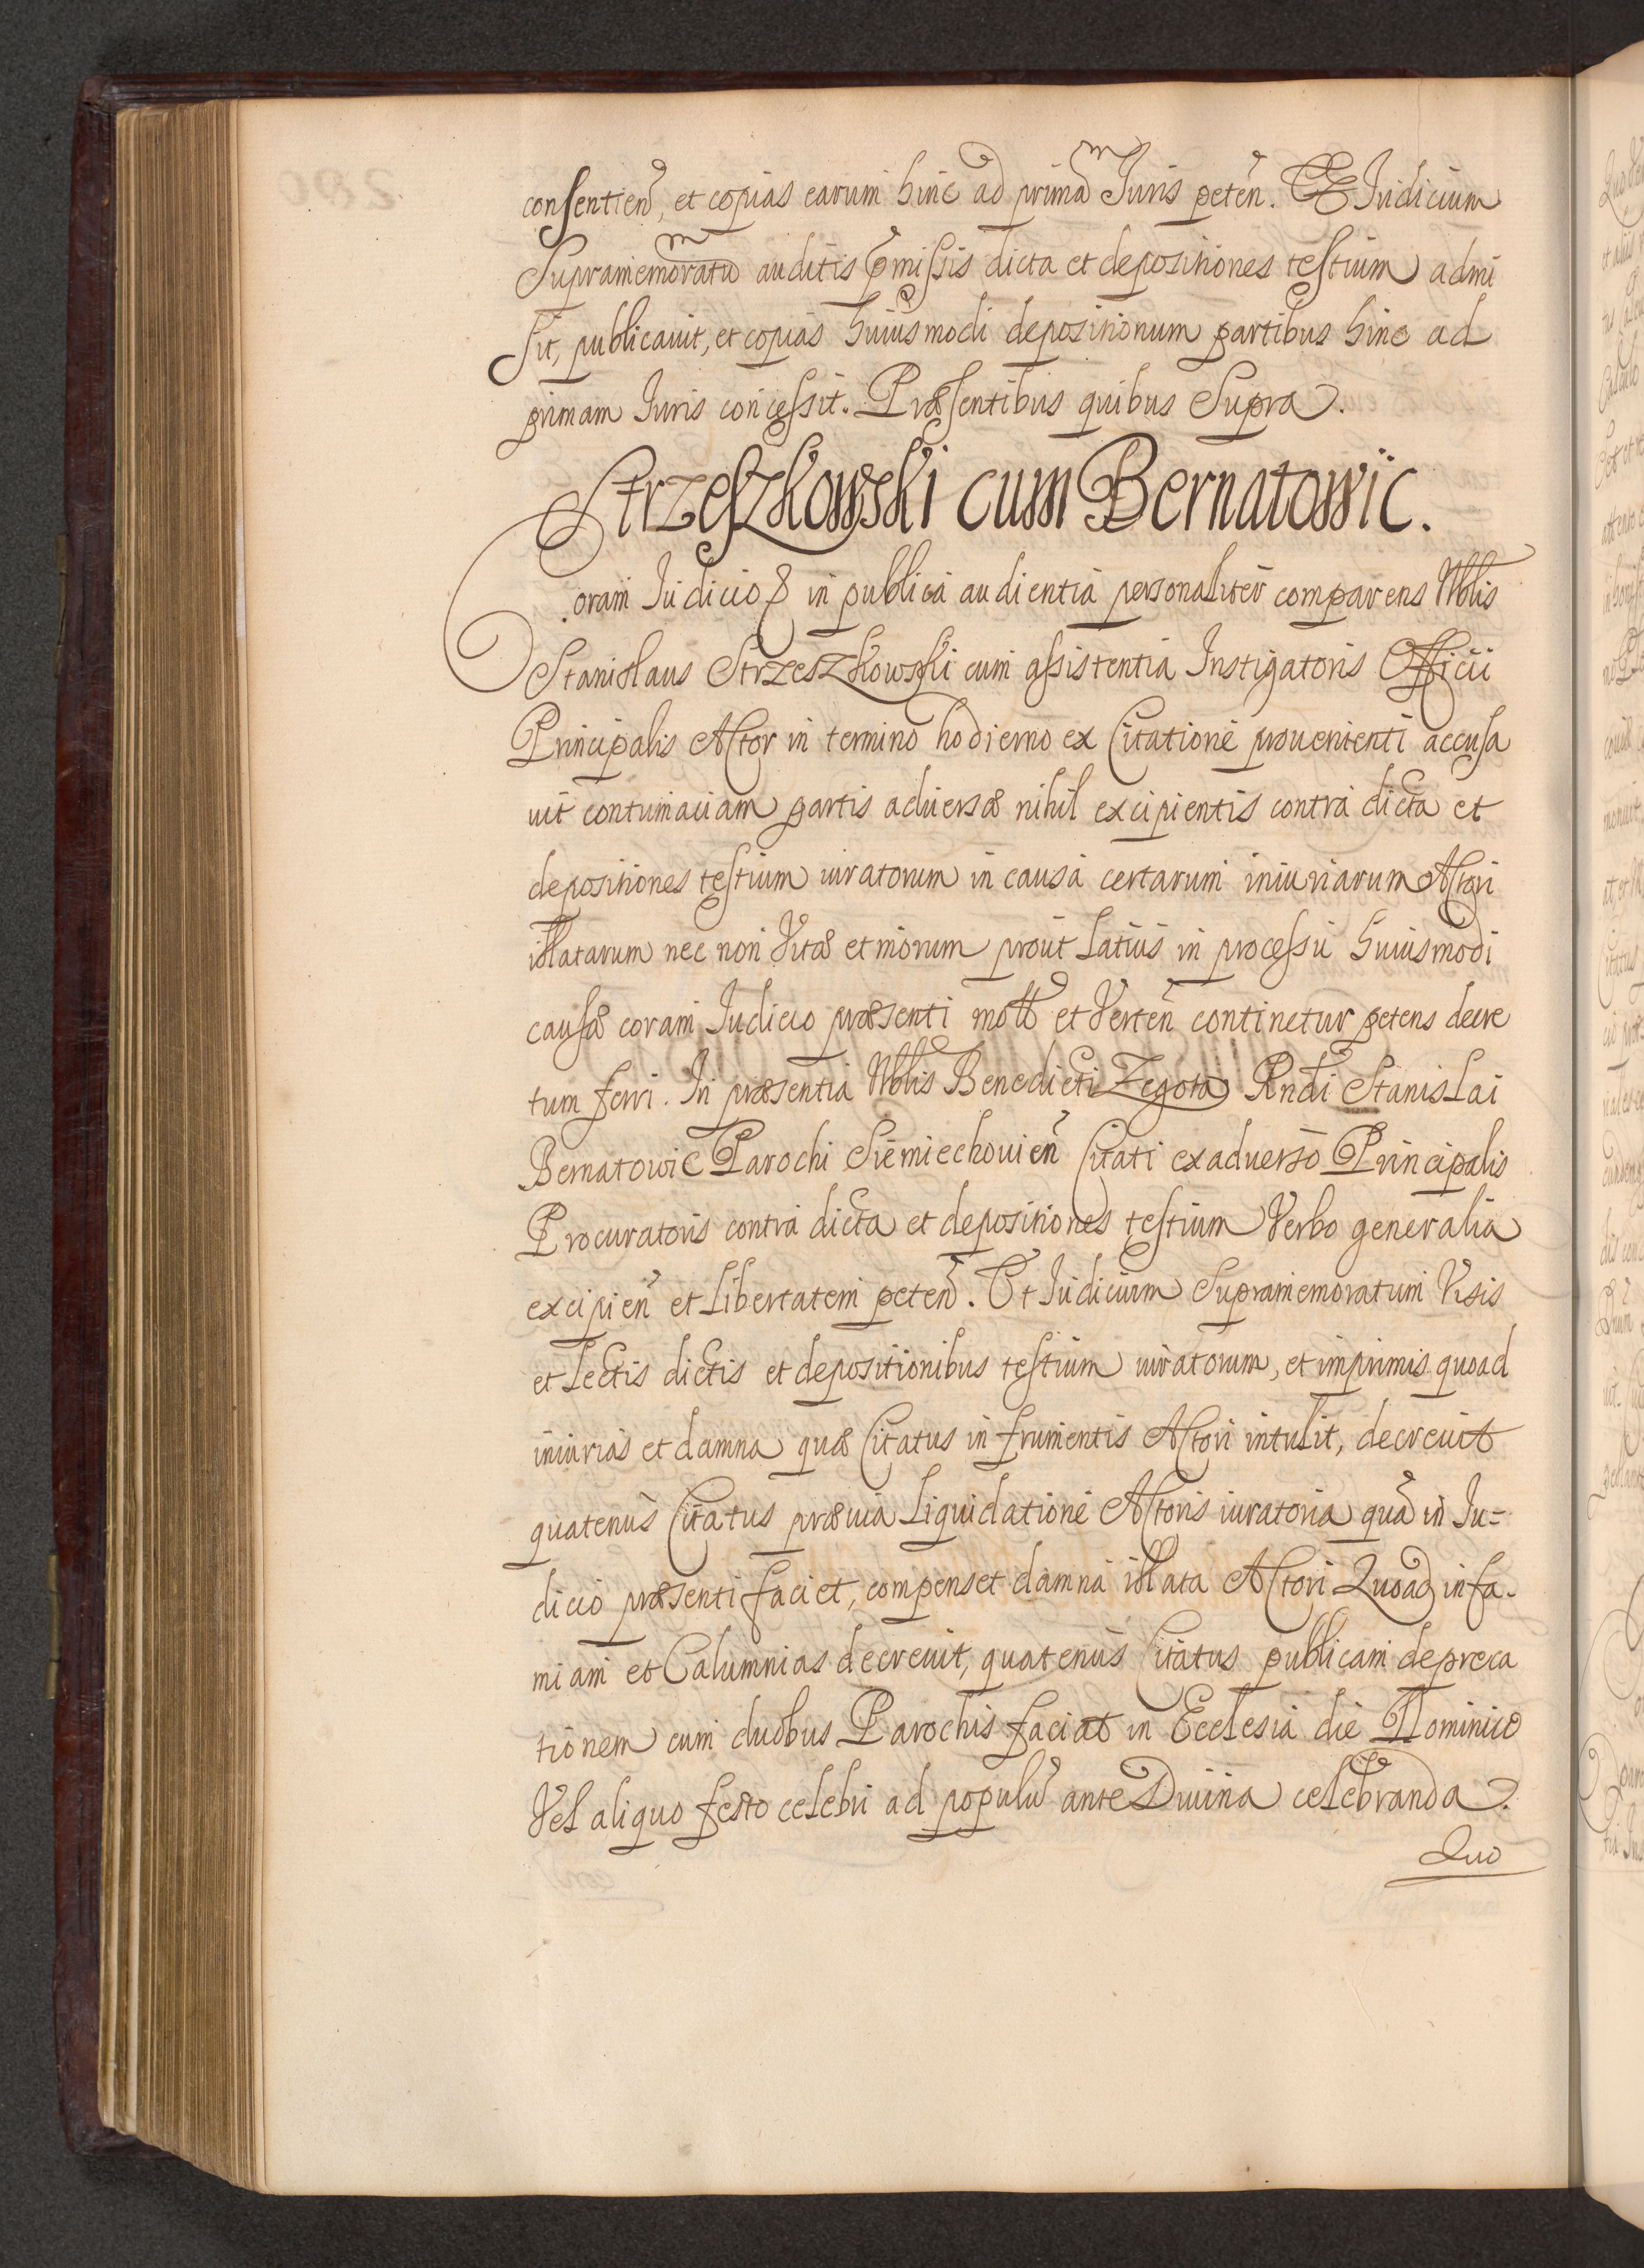 consentien̄, et copias earum hinc ad primã Iuris petēn. Et Iudicium
Supramemoratũ auditis p̄missis dicta et depositiones testium admi
sit, publicauit, et copias huiusmodi depositionum partibus hinc ad
primam Iuris concessit. Præsentibus quibus Supra.
Strzeszkowski cum Bernatowic.
Coram Iudicio & in publica audientia personaliter comparens Nblis
Stanislaus Strzeszkowski cum assistentia Instigatoris Officii
Principalis Actor in termino hodierno ex Citatione prouenienti accusa
uit contumaciam partis aduersæ nihil excipientis contra dicta et
depositiones testium iuratorum in causa certarum iniuriarum Actori
illatarum nec non Vitæ et morum prout latius in processu huiusmodi
causæ coram Iudicio præsenti mot̄ et Vertēn continetur petens decre
tum ferri. In præsentia Nblis Benedicti Zegota Rndi Stanislai
Bernatowic Parochi Siemiechouien̄ Citati ex aduerso Principalis
Procuratoris contra dicta et depositiones testium Verbo generalia
excipien̄ et libertatem peten̄. Et Iudicium Supramemoratum Visis
et lectis dictis et depositionibus testium iuratorum, et imprimis quoad
iniurias et damna quæ Citatus in frumentis Actori intulit, decreuit
quatenus Citatus præuia liquidatione Actoris iuratoria quã in Iu=
dicio præsenti faciet, compenset damna illata Actori Quoad infa-
miam et Calumnias decreuit, quatenus Citatus publicam depreca
tionem cum duobus Parochis faciat in Ecclesia die Dominico
Vel aliquo festo celebri ad populũ ante Diuina celebranda.
Quo